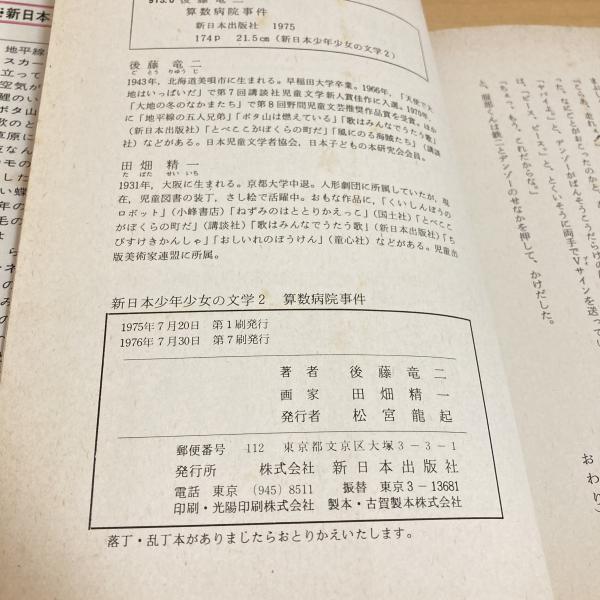 913.6 後藤竜二
算数病院事件
新日本出版社 1975
174p 21.5cm (新日本少年少女の文学2)
後藤竜二
ごとうりゅうじ
1943年,北海道美唄市に生まれる。早稲田大学卒業。1966年,「天使で大
地はいっぱいだ」で第7回講談社児童文学新人賞佳作に入選。1970年,
「大地の冬のなかまたち」で第8回野間児童文芸推奨作品賞を受賞。ほか
に「地平線の五人兄弟」「ボタ山は燃えている」「歌はみんなでうたう歌」
(新日本出版社)「とべここがぼくらの町だ」「風にのる海賊たち」(講談
社)などがある。日本児童文学者協会,日本子どもの本研究会会員。
田畑精一
たばたせいいち
1931年,大阪に生まれる。京都大学中退。人形劇団に所属していたが,現
在,児童図書の装丁,さし絵で活躍中。おもな作品に,「くいしんぼうの
ロボット」(小峰書店)「ねずみのはととりかえっこ」(国土社)「とべここ
がぼくらの町だ」(講談社)「歌はみんなでうたう歌」(新日本出版社)「ち
びすけきかんしゃ」「おしいれのぼうけん」(童心社)などがある。児童出
版美術家連盟に所属。
新日本少年少女の文学2 算数病院事件
1975年7月20日 第1刷発行
1976年7月30日 第7刷発行
著者 後藤竜二
画家 田畑精一
発行者 松宮龍起
郵便番号 112 東京都文京区大塚3-3-1
発行所 株式会社 新日本出版社
電話 東京 (945) 8511 振替 東京3-13681
印刷・光陽印刷株式会社 製本・古賀製本株式会社
落丁・乱丁本がありましたらおとりかえいたします。
と、デンゾーがばんそうこうだらけの
「ヤバイよ。」
「ピース、ピース。」と、とくいそうに両手でVサインを送ってい
「ちぇっ、もう。これだからな。」
と、服部くんは鉄二とデンゾーのせなかを押して、かけだした。
おわり)
※新日本
地平線
スカー
立って
空気が
鯉のい
ボタ山
歌のと
草原に